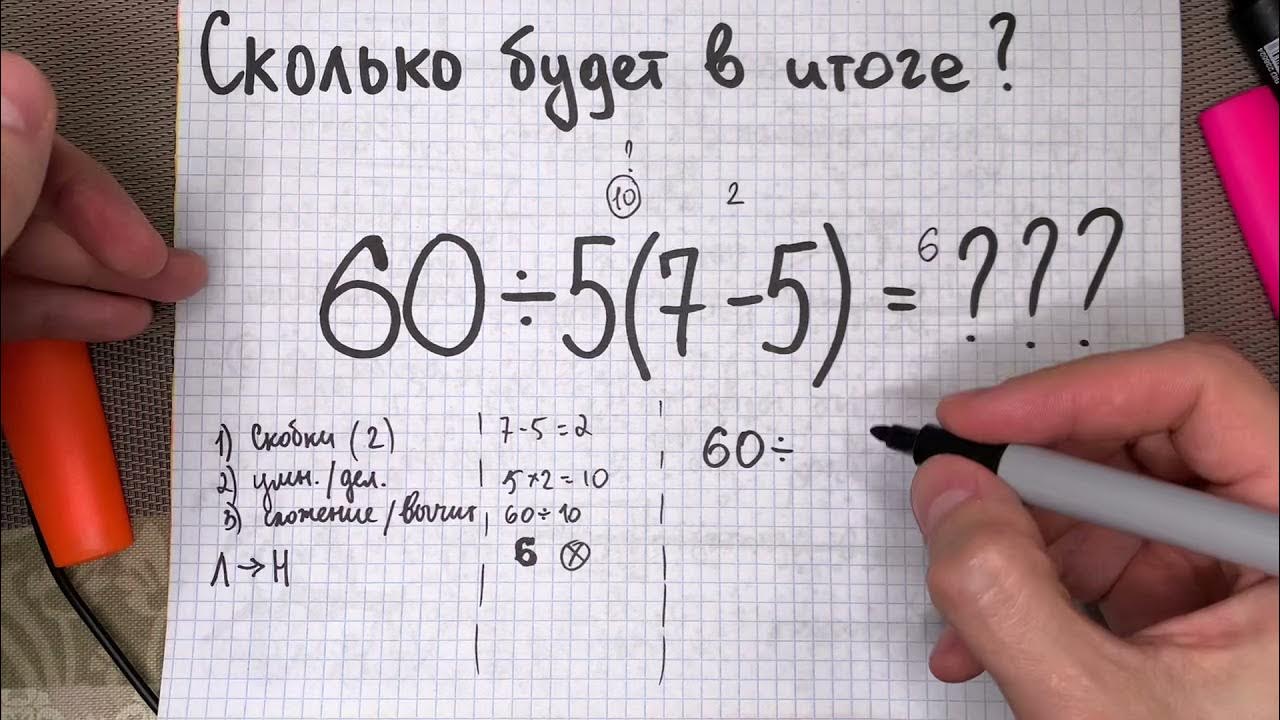 Сколько будет в итоге?
?
10 2
60÷5(7-5)= 6 ???
1) Скобки (2)
2) умн./дел.
3) сложение/вычит
Л→Н
7-5=2
5×2=10
60÷10
6 ⓧ
60÷